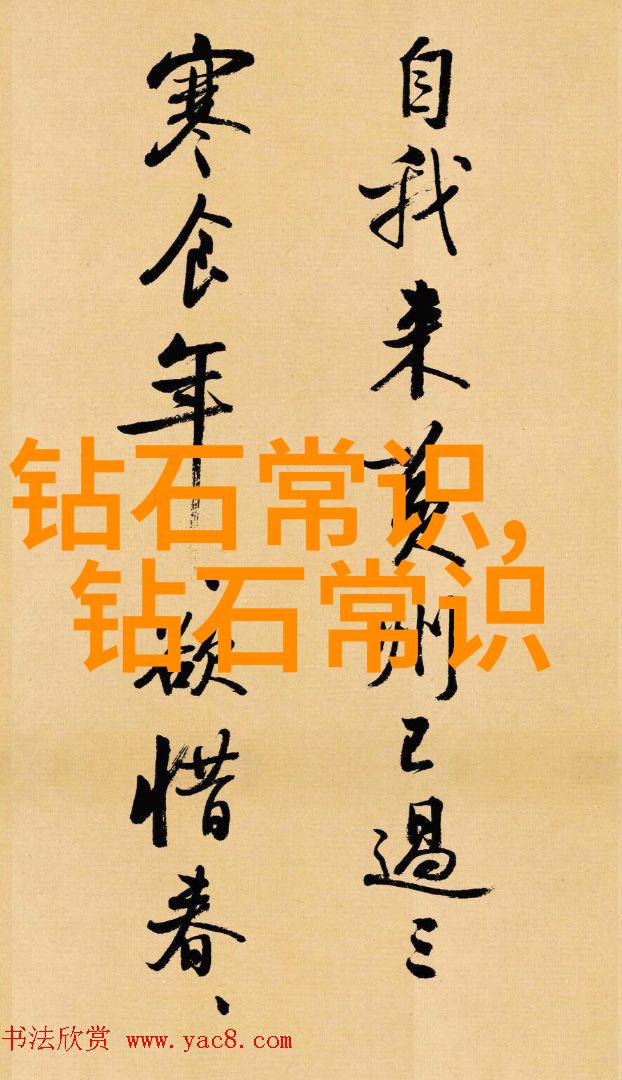 自我来黄州已過三
寒食年年欲惜春、
钻石常识，
钻石常识
书法欣赏 www.yac8.com